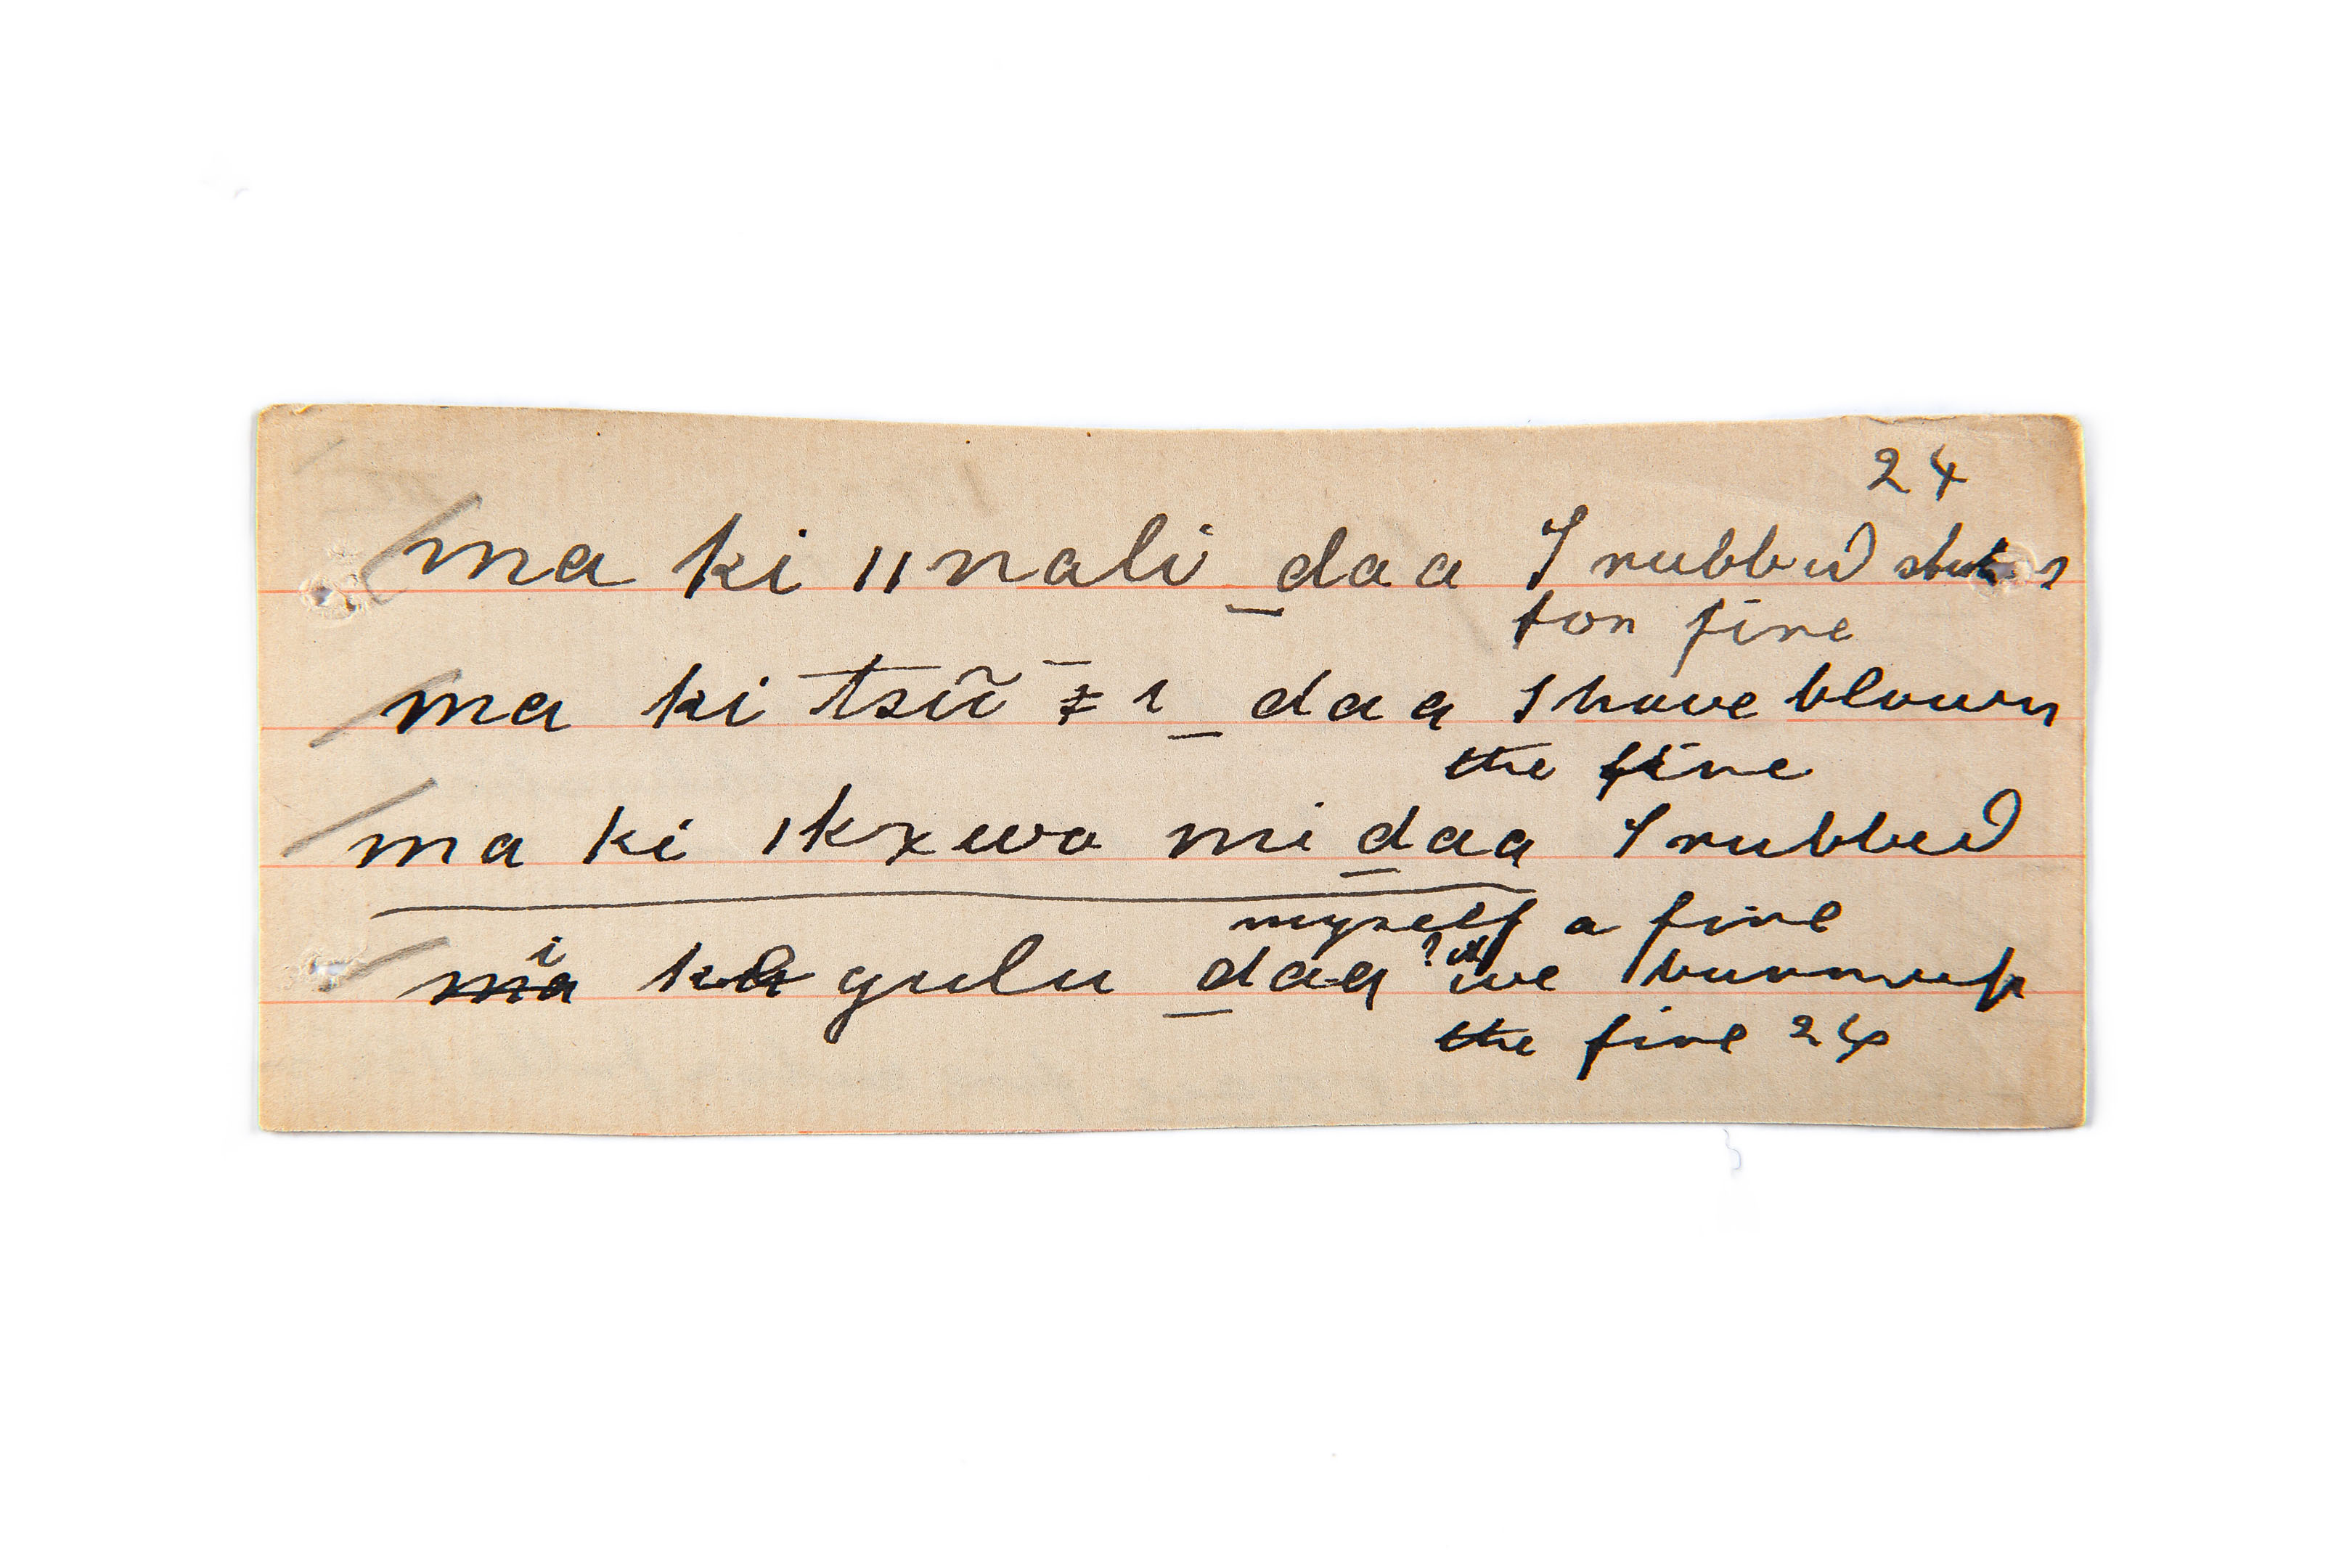 24
ma ki ǀǀnali _daa I rubbed sticks
for fire
ma ki tsiĩ ǂ ı _ daa I have blown
the fire
ma ki ǀkxwo mi daa I rubbed
myself a fire
i
gulu _daa ? we burn up
the fire 24